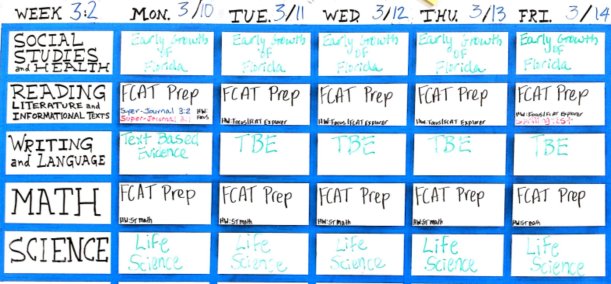 WEEK 3:2 MON. 3/10 TUE. 3/11 WED. 3/12 THU. 3/13 FRI. 3/14
SOCIAL STUDIES and HEALTH
Early Growth of Florida
Early Growth of Florida
Early Growth of Florida
Early Growth of Florida
Early Growth of Florida
READING LITERATURE and INFORMATIONAL TEXTS
FCAT Prep
Super-Journal 3:2 HW:
Super-Journal 3:1
FCAT Prep
HW: Focus/FCAT Explorer
FCAT Prep
HW: Focus/FCAT Explorer
FCAT Prep
HW: Focus/FCAT Explorer
FCAT Prep
HW: Focus/FCAT Explorer
WRITING and LANGUAGE
Text Based Evidence
TBE
TBE
TBE
TBE
MATH
FCAT Prep
HW: ST math
FCAT Prep
HW: ST math
FCAT Prep
HW: ST math
FCAT Prep
HW: ST math
FCAT Prep
HW: ST math
SCIENCE
Life Science
Life Science
Life Science
Life Science
Life Science